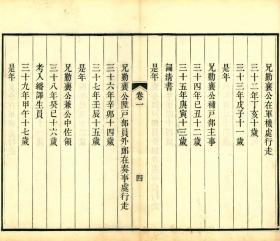 兄勤襄公在軍機處行走
三十二年丁亥十歲
三十三年戊子十一歲
是年
兄勤襄公補戶部主事
三十四年己丑十二歲
三十五年庚寅十三歲
誦清書
是年
卷一
四
兄勤襄公陞戶部員外郎在奏事處行走
三十六年辛卯十四歲
三十七年壬辰十五歲
是年
兄勤襄公兼公中佐領
三十八年癸巳十六歲
考入繙譯生員
三十九年甲午十七歲
是年